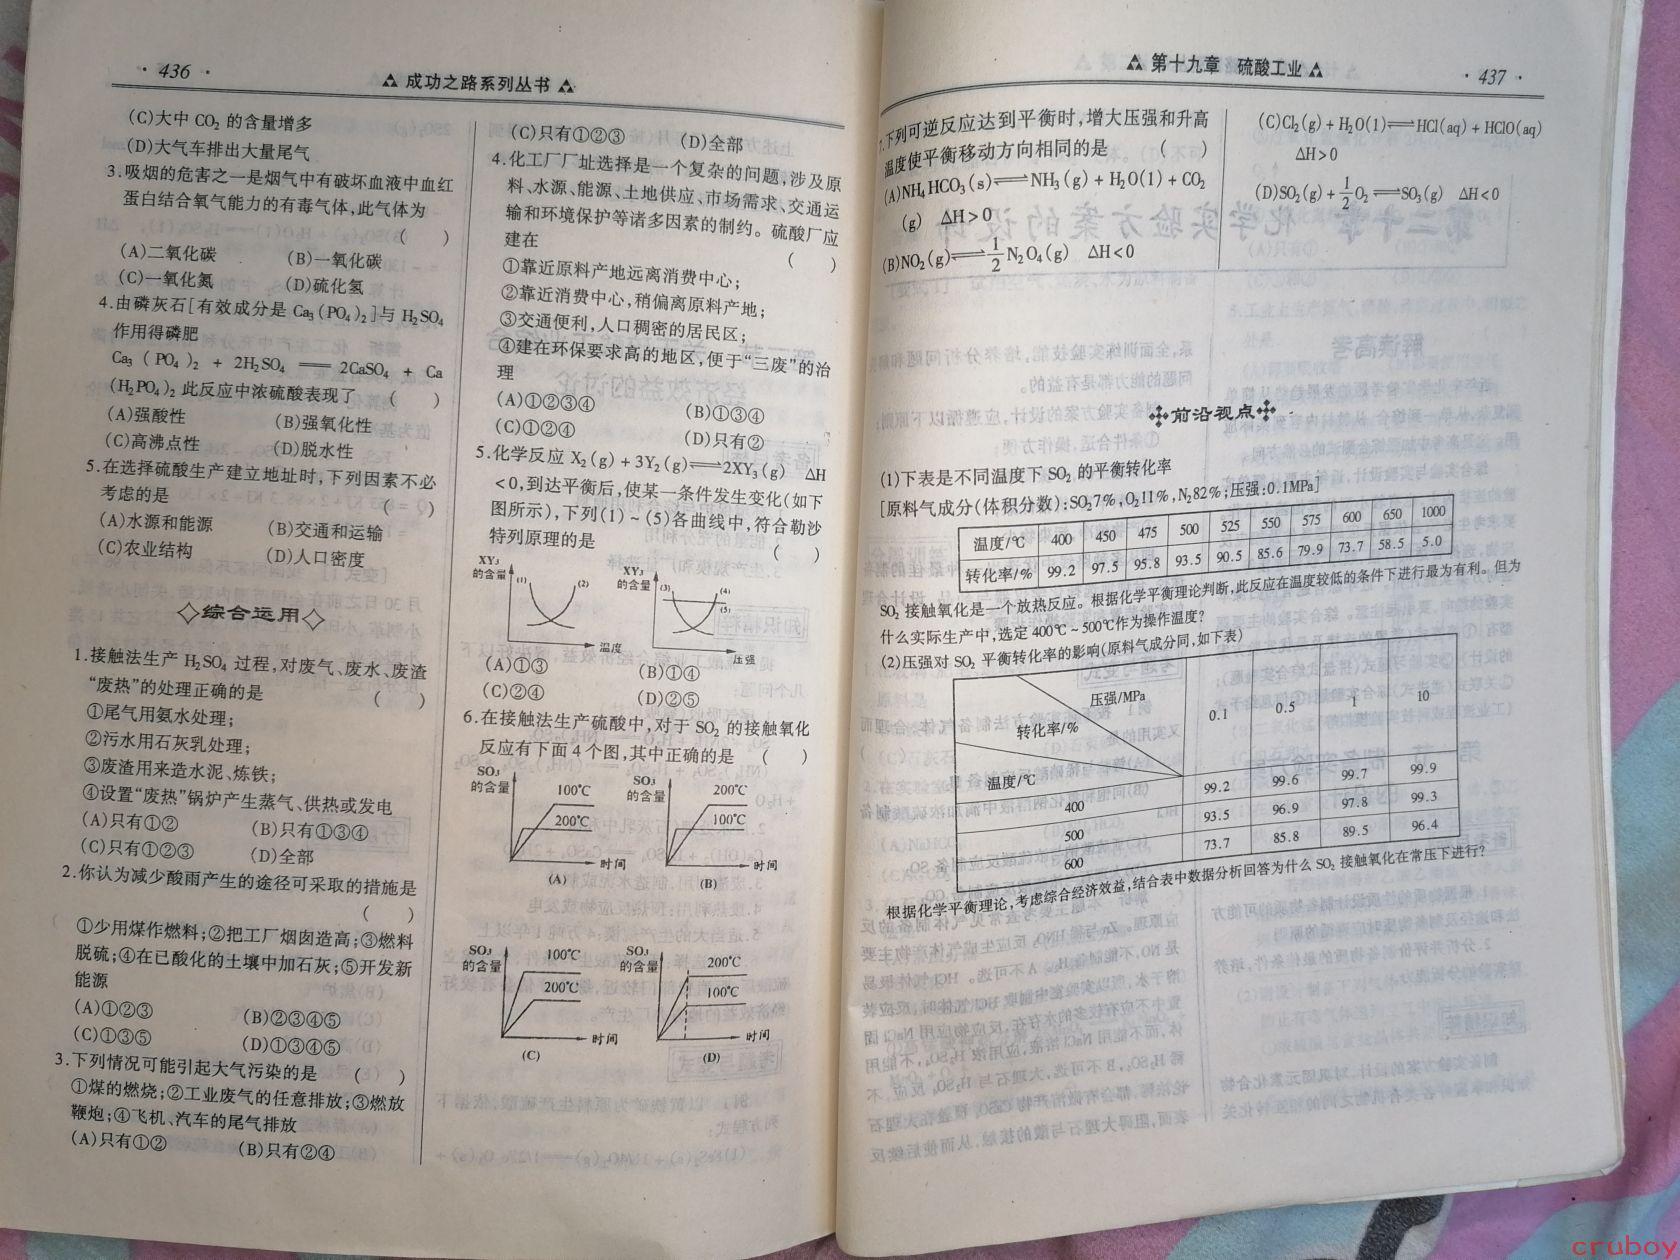 · 436 ·
成功之路系列丛书
(C)大中 CO₂ 的含量增多
(D)大气车排出大量尾气
3.吸烟的危害之一是烟气中有破坏血液中血红
蛋白结合氧气能力的有毒气体,此气体为
( )
(A)二氧化碳 (B)一氧化碳
(C)一氧化氮 (D)硫化氢
4.由磷灰石[有效成分是 Ca₃(PO₄)₂]与 H₂SO₄
作用得磷肥
Ca₃(PO₄)₂ + 2H₂SO₄ ══ 2CaSO₄ + Ca
(H₂PO₄)₂ 此反应中浓硫酸表现了 ( )
(A)强酸性 (B)强氧化性
(C)高沸点性 (D)脱水性
5.在选择硫酸生产建立地址时,下列因素不必
考虑的是 ( )
(A)水源和能源 (B)交通和运输
(C)农业结构 (D)人口密度
综合运用
1.接触法生产 H₂SO₄ 过程,对废气、废水、废渣
“废热”的处理正确的是 ( )
①尾气用氨水处理;
②污水用石灰乳处理;
③废渣用来造水泥、炼铁;
④设置“废热”锅炉产生蒸气、供热或发电
(A)只有①② (B)只有①③④
(C)只有①②③ (D)全部
2.你认为减少酸雨产生的途径可采取的措施是
( )
①少用煤作燃料;②把工厂烟囱造高;③燃料
脱硫;④在已酸化的土壤中加石灰;⑤开发新
能源
(A)①②③ (B)②③④⑤
(C)①③⑤ (D)①③④⑤
3.下列情况可能引起大气污染的是 ( )
①煤的燃烧;②工业废气的任意排放;③燃放
鞭炮;④飞机、汽车的尾气排放
(A)只有①② (B)只有②④
(C)只有①②③ (D)全部
4.化工厂厂址选择是一个复杂的问题,涉及原
料、水源、能源、土地供应、市场需求、交通运
输和环境保护等诸多因素的制约。硫酸厂应
建在 ( )
①靠近原料产地远离消费中心;
②靠近消费中心,稍偏离原料产地;
③交通便利,人口稠密的居民区;
④建在环保要求高的地区,便于“三废”的治
理
(A)①②③④ (B)①③④
(C)①②④ (D)只有②
5.化学反应 X₂(g) + 3Y₂(g)⇌2XY₃(g) ΔH
<0,到达平衡后,使某一条件发生变化(如下
图所示),下列(1)~(5)各曲线中,符合勒沙
特列原理的是 ( )
XY₃ 的含量 (1) (2) 温度
XY₃ 的含量 (3) (4) (5) 压强
(A)①③ (B)①④
(C)②④ (D)②⑤
6.在接触法生产硫酸中,对于 SO₂ 的接触氧化
反应有下面 4 个图,其中正确的是 ( )
SO₃ 的含量 100℃ 200℃ 时间 (A)
SO₃ 的含量 200℃ 100℃ 时间 (B)
SO₃ 的含量 100℃ 200℃ 时间 (C)
SO₃ 的含量 200℃ 100℃ 时间 (D)
第十九章 硫酸工业
· 437 ·
7.下列可逆反应达到平衡时,增大压强和升高
温度使平衡移动方向相同的是 ( )
(A)NH₄HCO₃(s)⇌NH₃(g) + H₂O(l) + CO₂
(g) ΔH>0
(B)NO₂(g)⇌1/2 N₂O₄(g) ΔH<0
(C)Cl₂(g) + H₂O(l)⇌HCl(aq) + HClO(aq)
ΔH>0
(D)SO₂(g) + 1/2 O₂⇌SO₃(g) ΔH<0
前沿视点
(1)下表是不同温度下 SO₂ 的平衡转化率
[原料气成分(体积分数):SO₂7%,O₂11%,N₂82%;压强:0.1MPa]
温度/℃ 400 450 475 500 525 550 575 600 650 1000
转化率/% 99.2 97.5 95.8 93.5 90.5 85.6 79.9 73.7 58.5 5.0
SO₂ 接触氧化是一个放热反应。根据化学平衡理论判断,此反应在温度较低的条件下进行最为有利。但为
什么实际生产中,选定 400℃~500℃作为操作温度?
(2)压强对 SO₂ 平衡转化率的影响(原料气成分同,如下表)
压强/MPa 0.1 0.5 1 10
转化率/%
温度/℃
400 99.2 99.6 99.7 99.9
500 93.5 96.9 97.8 99.3
600 73.7 85.8 89.5 96.4
根据化学平衡理论,考虑综合经济效益,结合表中数据分析回答为什么 SO₂ 接触氧化在常压下进行?
cruboy